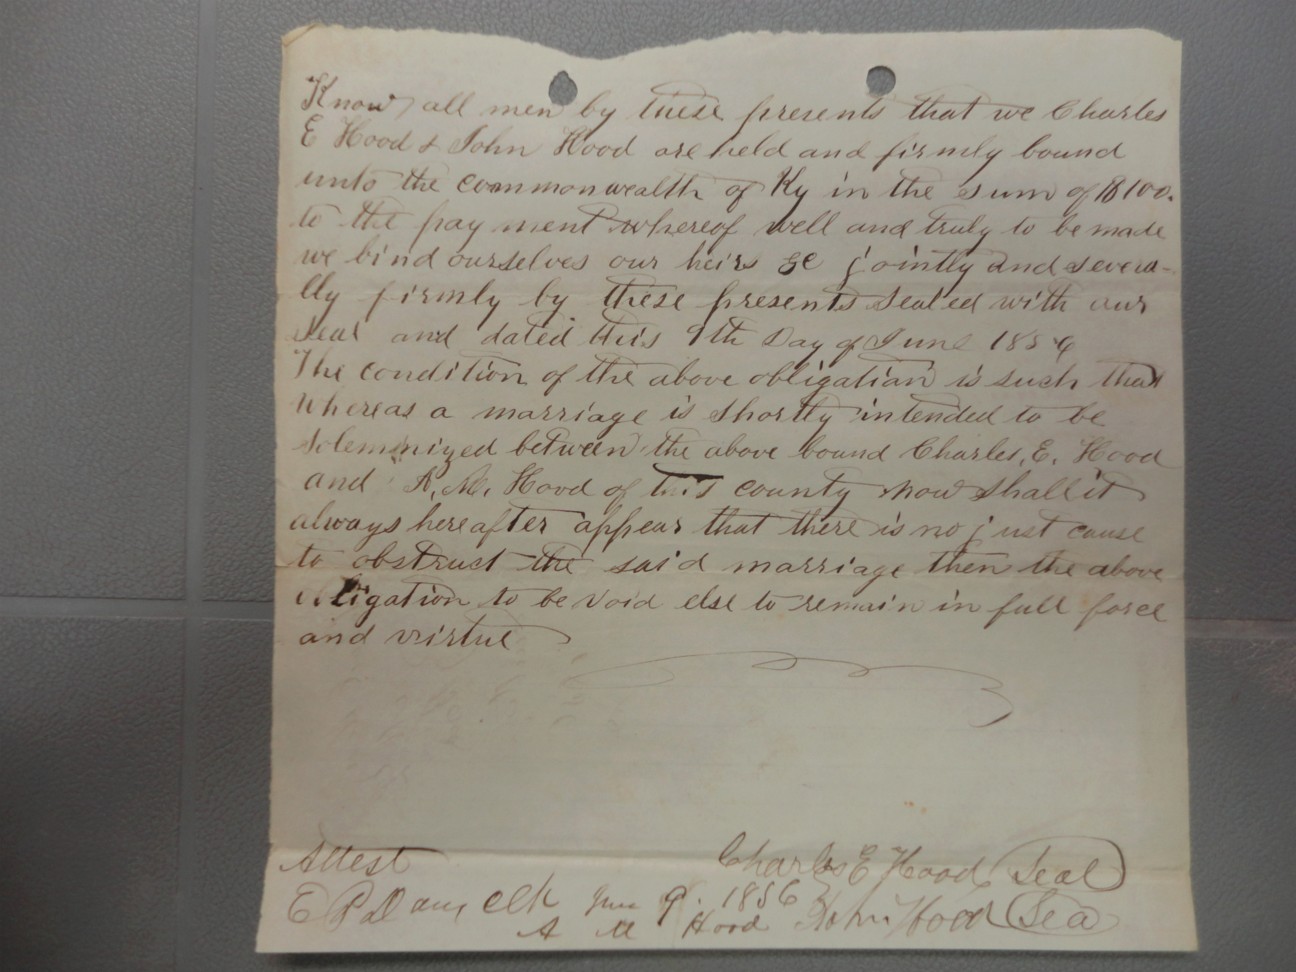 Know all men by these presents that we Charles
E Hood & John Hood are held and firmly bound
unto the commonwealth of Ky in the sum of $100.
to the pay ment whereof well and truly to be made
we bind ourselves our heirs &c jointly and severa-
lly firmly by these presents sealed with our
seal and dated this 9th Day of June 1856
The condition of the above obligation is such that
whereas a marriage is shortly intended to be
solemnized between the above bound Charles. E. Hood
and A. M. Hood of this county now shall it
always hereafter appear that there is no just cause
to obstruct the said marriage then the above
obligation to be void else to remain in full force
and virtue
Attest
Charles E Hood Seal
E clk June 9. 1856 John Hood Sea
A M Hood